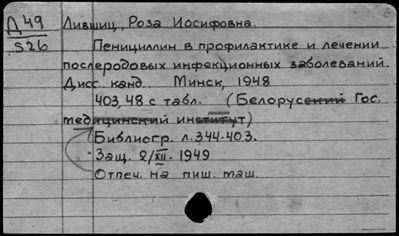 Д49 Лившиц, Роза Иосифовна.
526
Пенициллин в профилактике и лечении
послеродовых инфекционных заболеваний.
Дисс. канд. Минск, 1948
403, 48 с табл. (Белорусский Гос.
медицинский институт)
Библиогр. л. 344-403.
Защ. 2/XII- 1949
Отпеч. на пиш. маш.